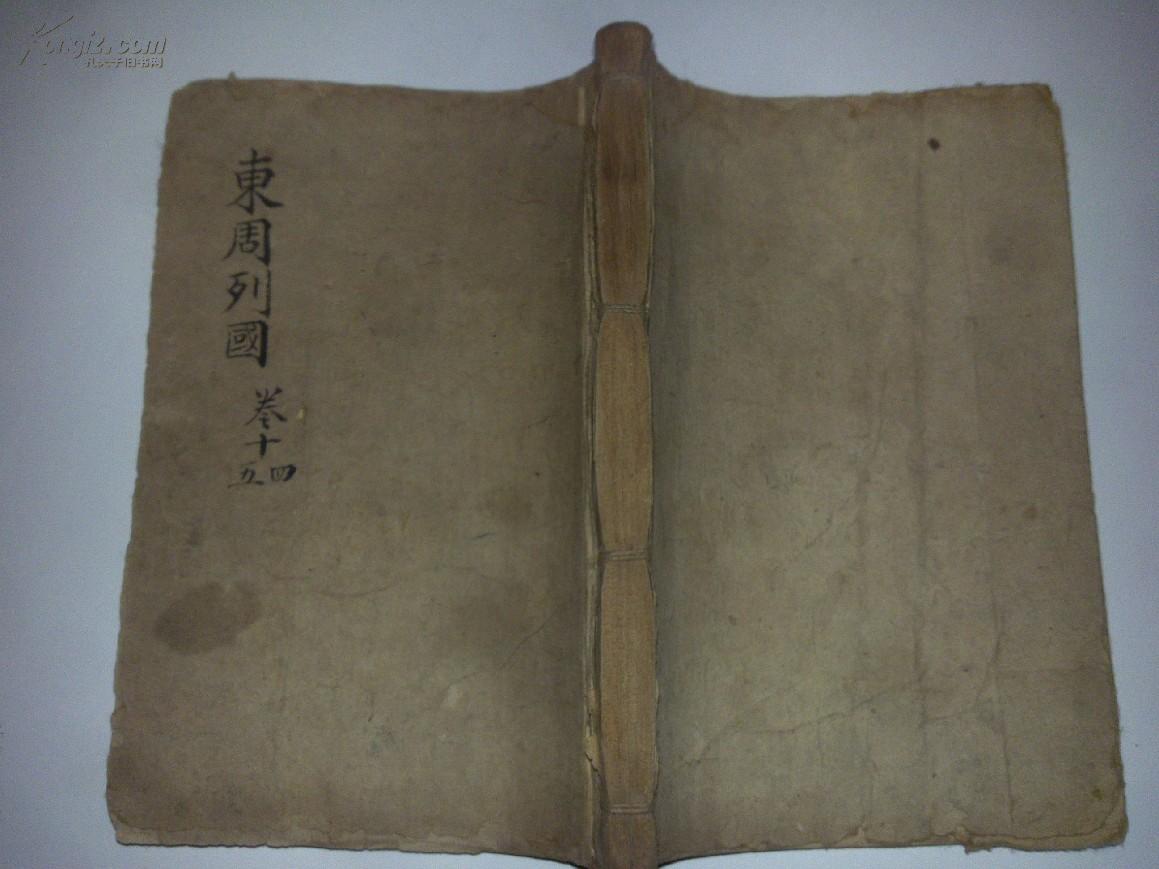 Kongfz.com
孔夫子旧书网
東周列國
卷十四
五